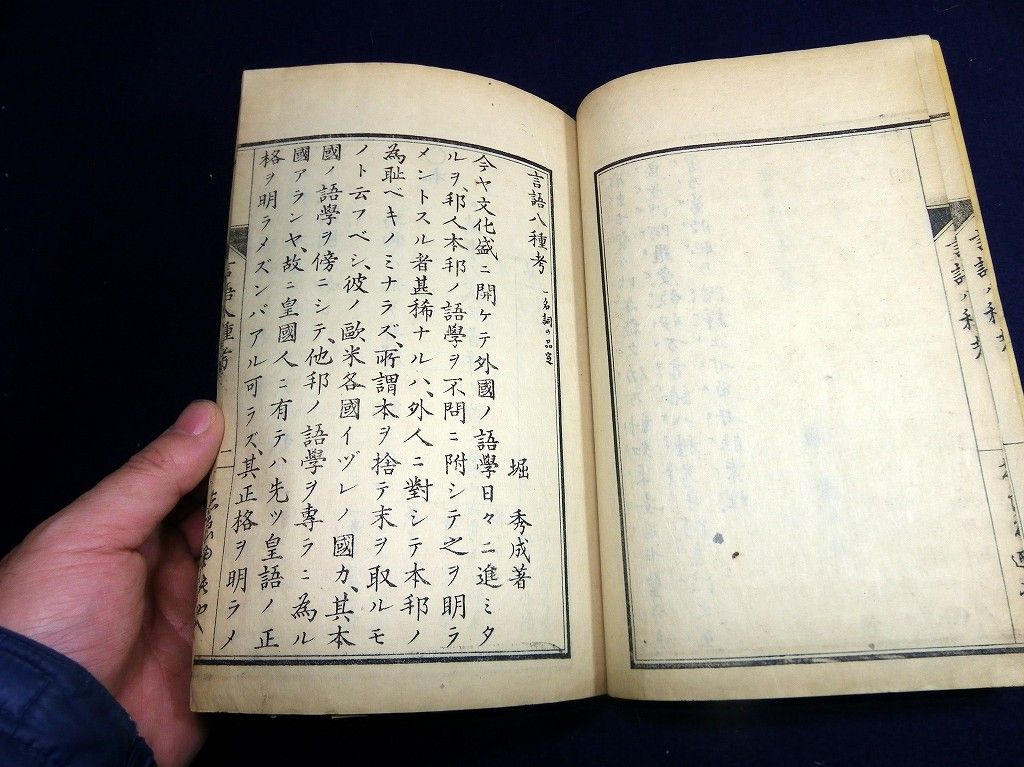 言語八種考 一名詞の品定
堀秀成著
今ヤ文化盛ニ開ケテ外國ノ語學日々ニ進ミタ
ルヲ、邦人本邦ノ語學ヲ不問ニ附シテ之ヲ明ラ
メントスル者甚稀ナルハ、外人ニ對シテ本邦ノ
為恥ベキノミナラズ、所謂本ヲ捨テ末ヲ取ルモ
ノト云フベシ、彼ノ歐米各國イヅレノ國カ、其本
國ノ語學ヲ傍ニシテ、他邦ノ語學ヲ專ラニ為ル
國アランヤ、故ニ皇國人ニ有テハ先ツ皇語ノ正
格ヲ明ラメズンバアル可ラズ、其正格ヲ明ラメ
言語八種考
一